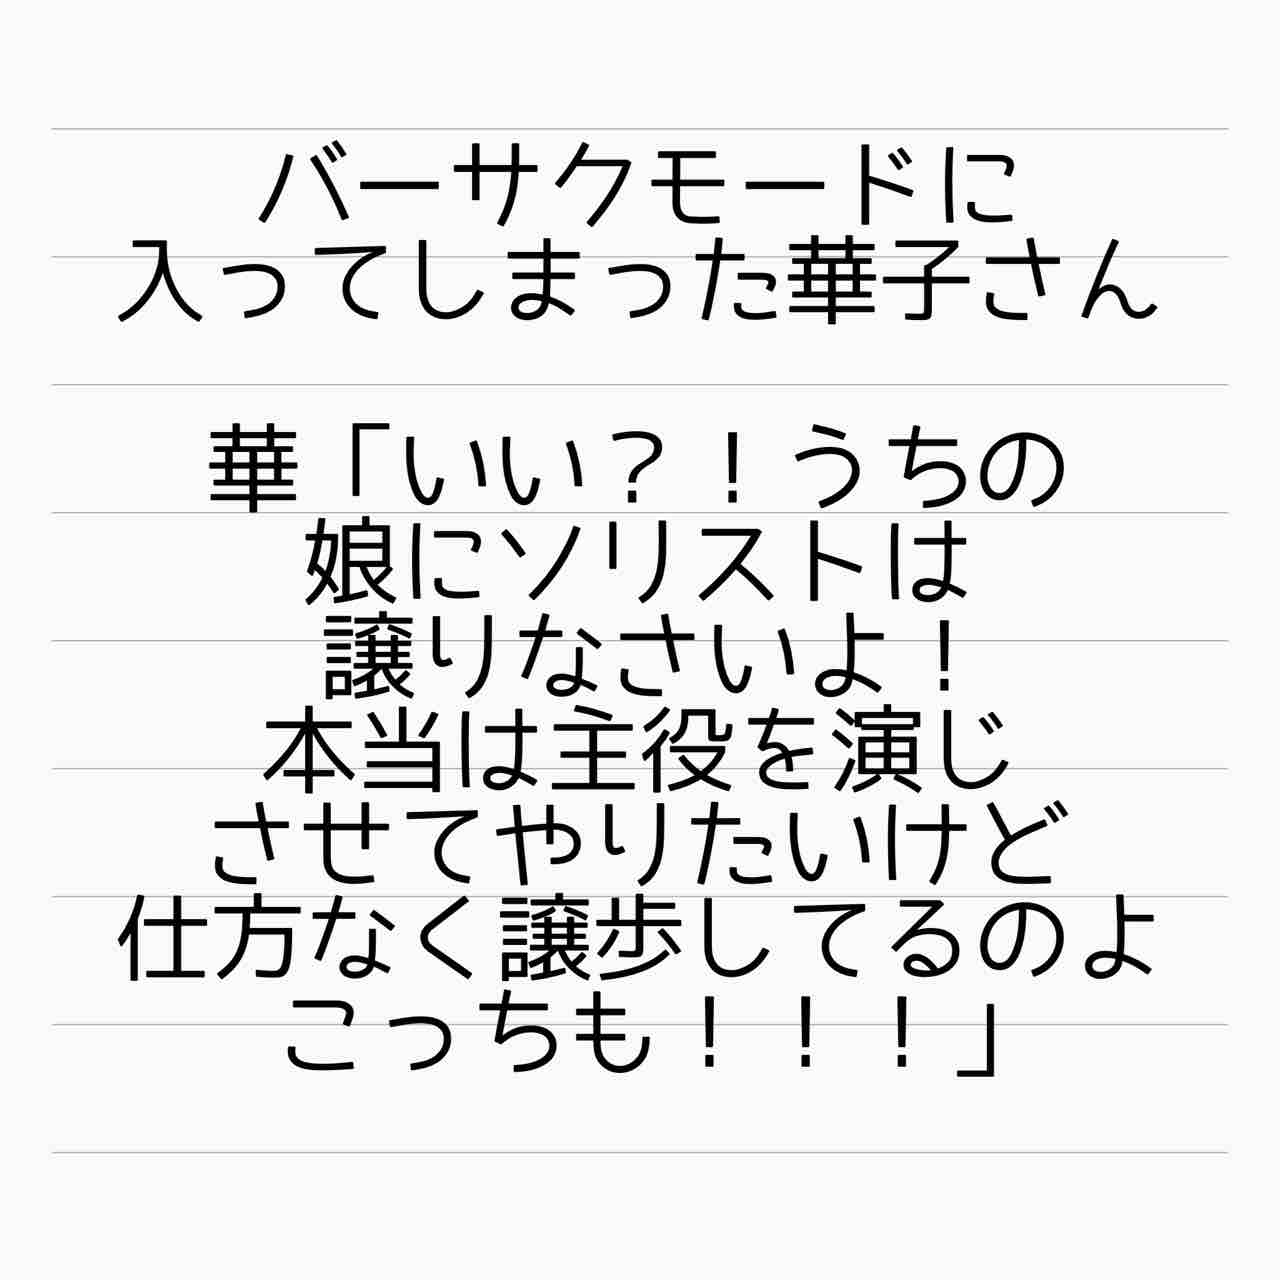 バーサクモードに
入ってしまった華子さん
華「いい？！うちの
娘にソリストは
譲りなさいよ！
本当は主役を演じ
させてやりたいけど
仕方なく譲歩してるのよ
こっちも！！！」